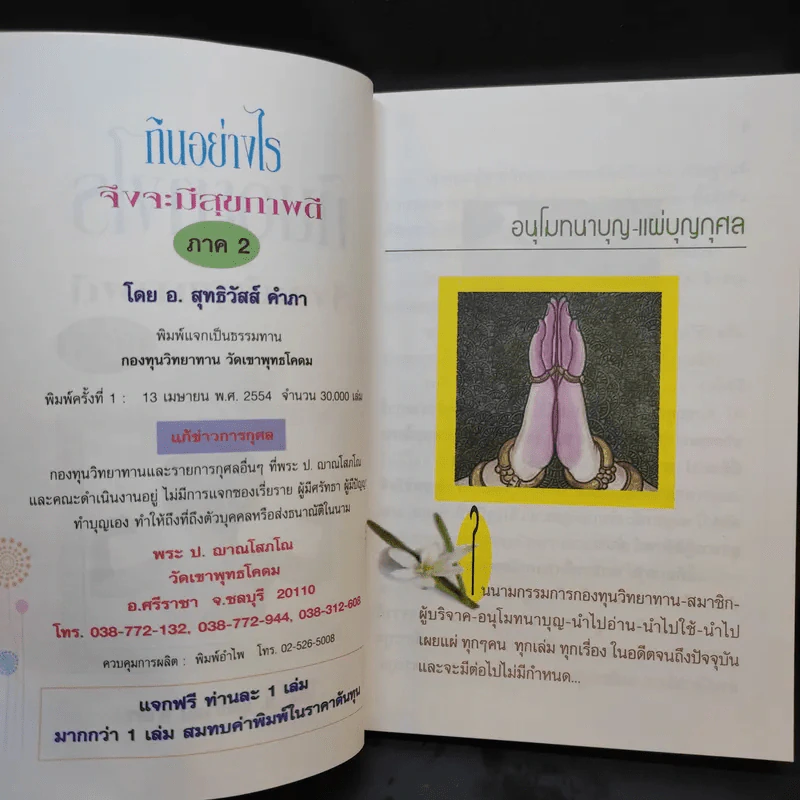 กินอย่างไร
จึงจะมีสุขภาพดี
ภาค 2
โดย อ. สุทธิวัสส์ คำภา
พิมพ์แจกเป็นธรรมทาน
กองทุนวิทยาทาน วัดเขาพุทธโคดม
พิมพ์ครั้งที่ 1 : 13 เมษายน พ.ศ. 2554 จำนวน 30,000 เล่ม
แก้ข่าวการกุศล
กองทุนวิทยาทานและรายการกุศลอื่นๆ ที่พระ ป. ญาณโสภโณ
และคณะดำเนินงานอยู่ ไม่มีการแจกซองเรี่ยราย ผู้มีศรัทธา ผู้มีปัญญา
ทำบุญเอง ทำให้ถึงที่ถึงตัวบุคคลหรือส่งธนาณัติในนาม
พระ ป. ญาณโสภโณ
วัดเขาพุทธโคดม
อ.ศรีราชา จ.ชลบุรี 20110
โทร. 038-772-132, 038-772-944, 038-312-608
ควบคุมการผลิต : พิมพ์อำไพ โทร. 02-526-5008
แจกฟรี ท่านละ 1 เล่ม
มากกว่า 1 เล่ม สมทบค่าพิมพ์ในราคาต้นทุน
อนุโมทนาบุญ-แผ่บุญกุศล
ในนามกรรมการกองทุนวิทยาทาน-สมาชิก-
ผู้บริจาค-อนุโมทนาบุญ-นำไปอ่าน-นำไปใช้-นำไป
เผยแผ่ ทุกๆคน ทุกเล่ม ทุกเรื่อง ในอดีตจนถึงปัจจุบัน
และจะมีต่อไปไม่มีกำหนด...